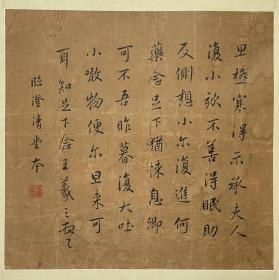 旦極寒得示承夫人
復小欬不善得眠助
反側想小尔復進何
藥念足下猶悚息卿
可不吾昨暮復大吐
小噉物便尔旦来可
耳知足下念王羲之
臨澄清堂本